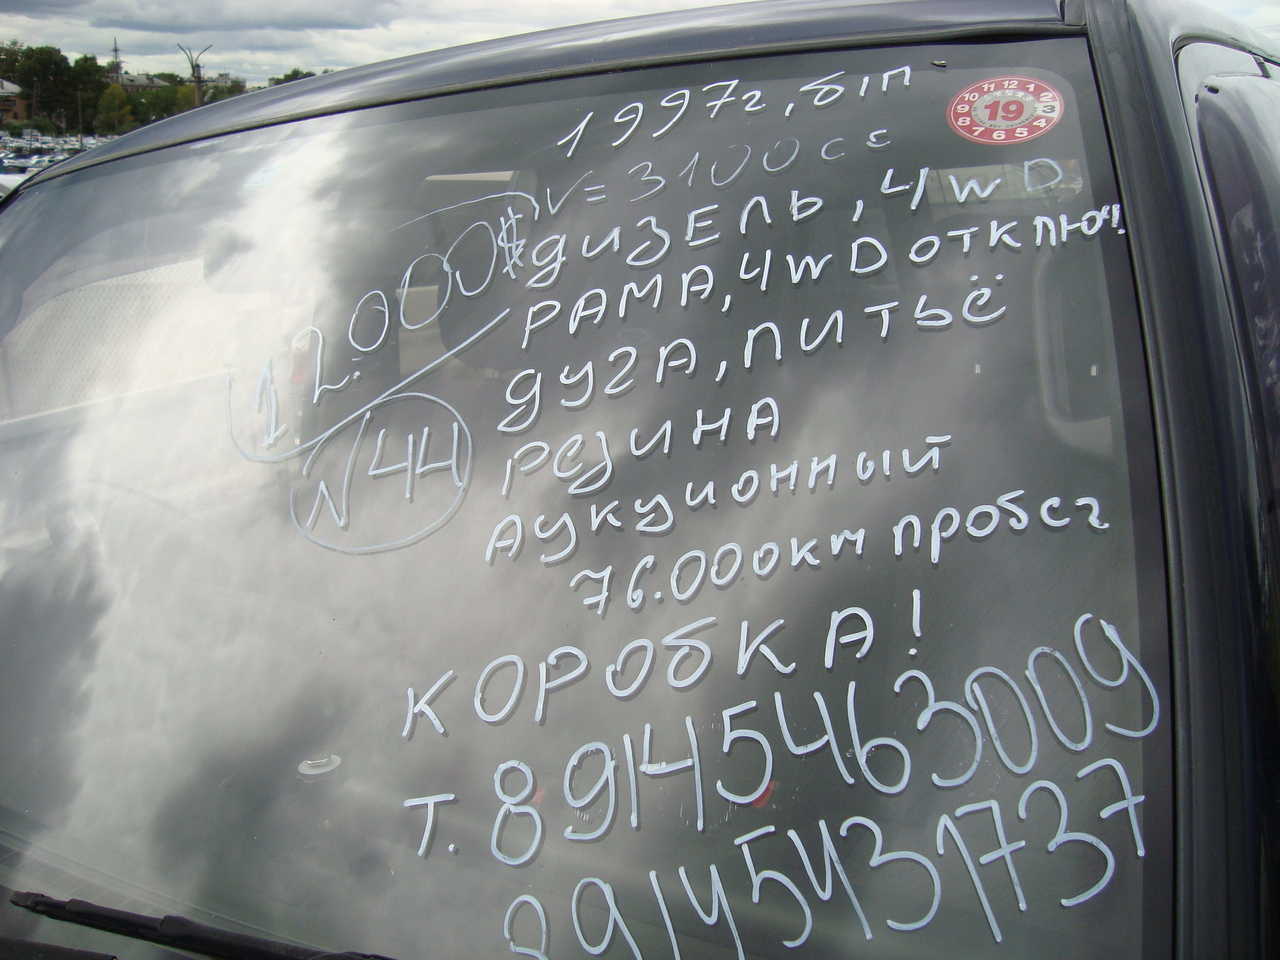 1997г, б/п
V=3100cc
дизель, 4WD
рама, 4WD отключ!
дуга, литьё
резина
аукционный
76.000км пробег
КОРОБКА!
Т. 89145463009
89145431737
12.000$
N44
11 12 1
10 2
9 19 3
8 4
7 6 5